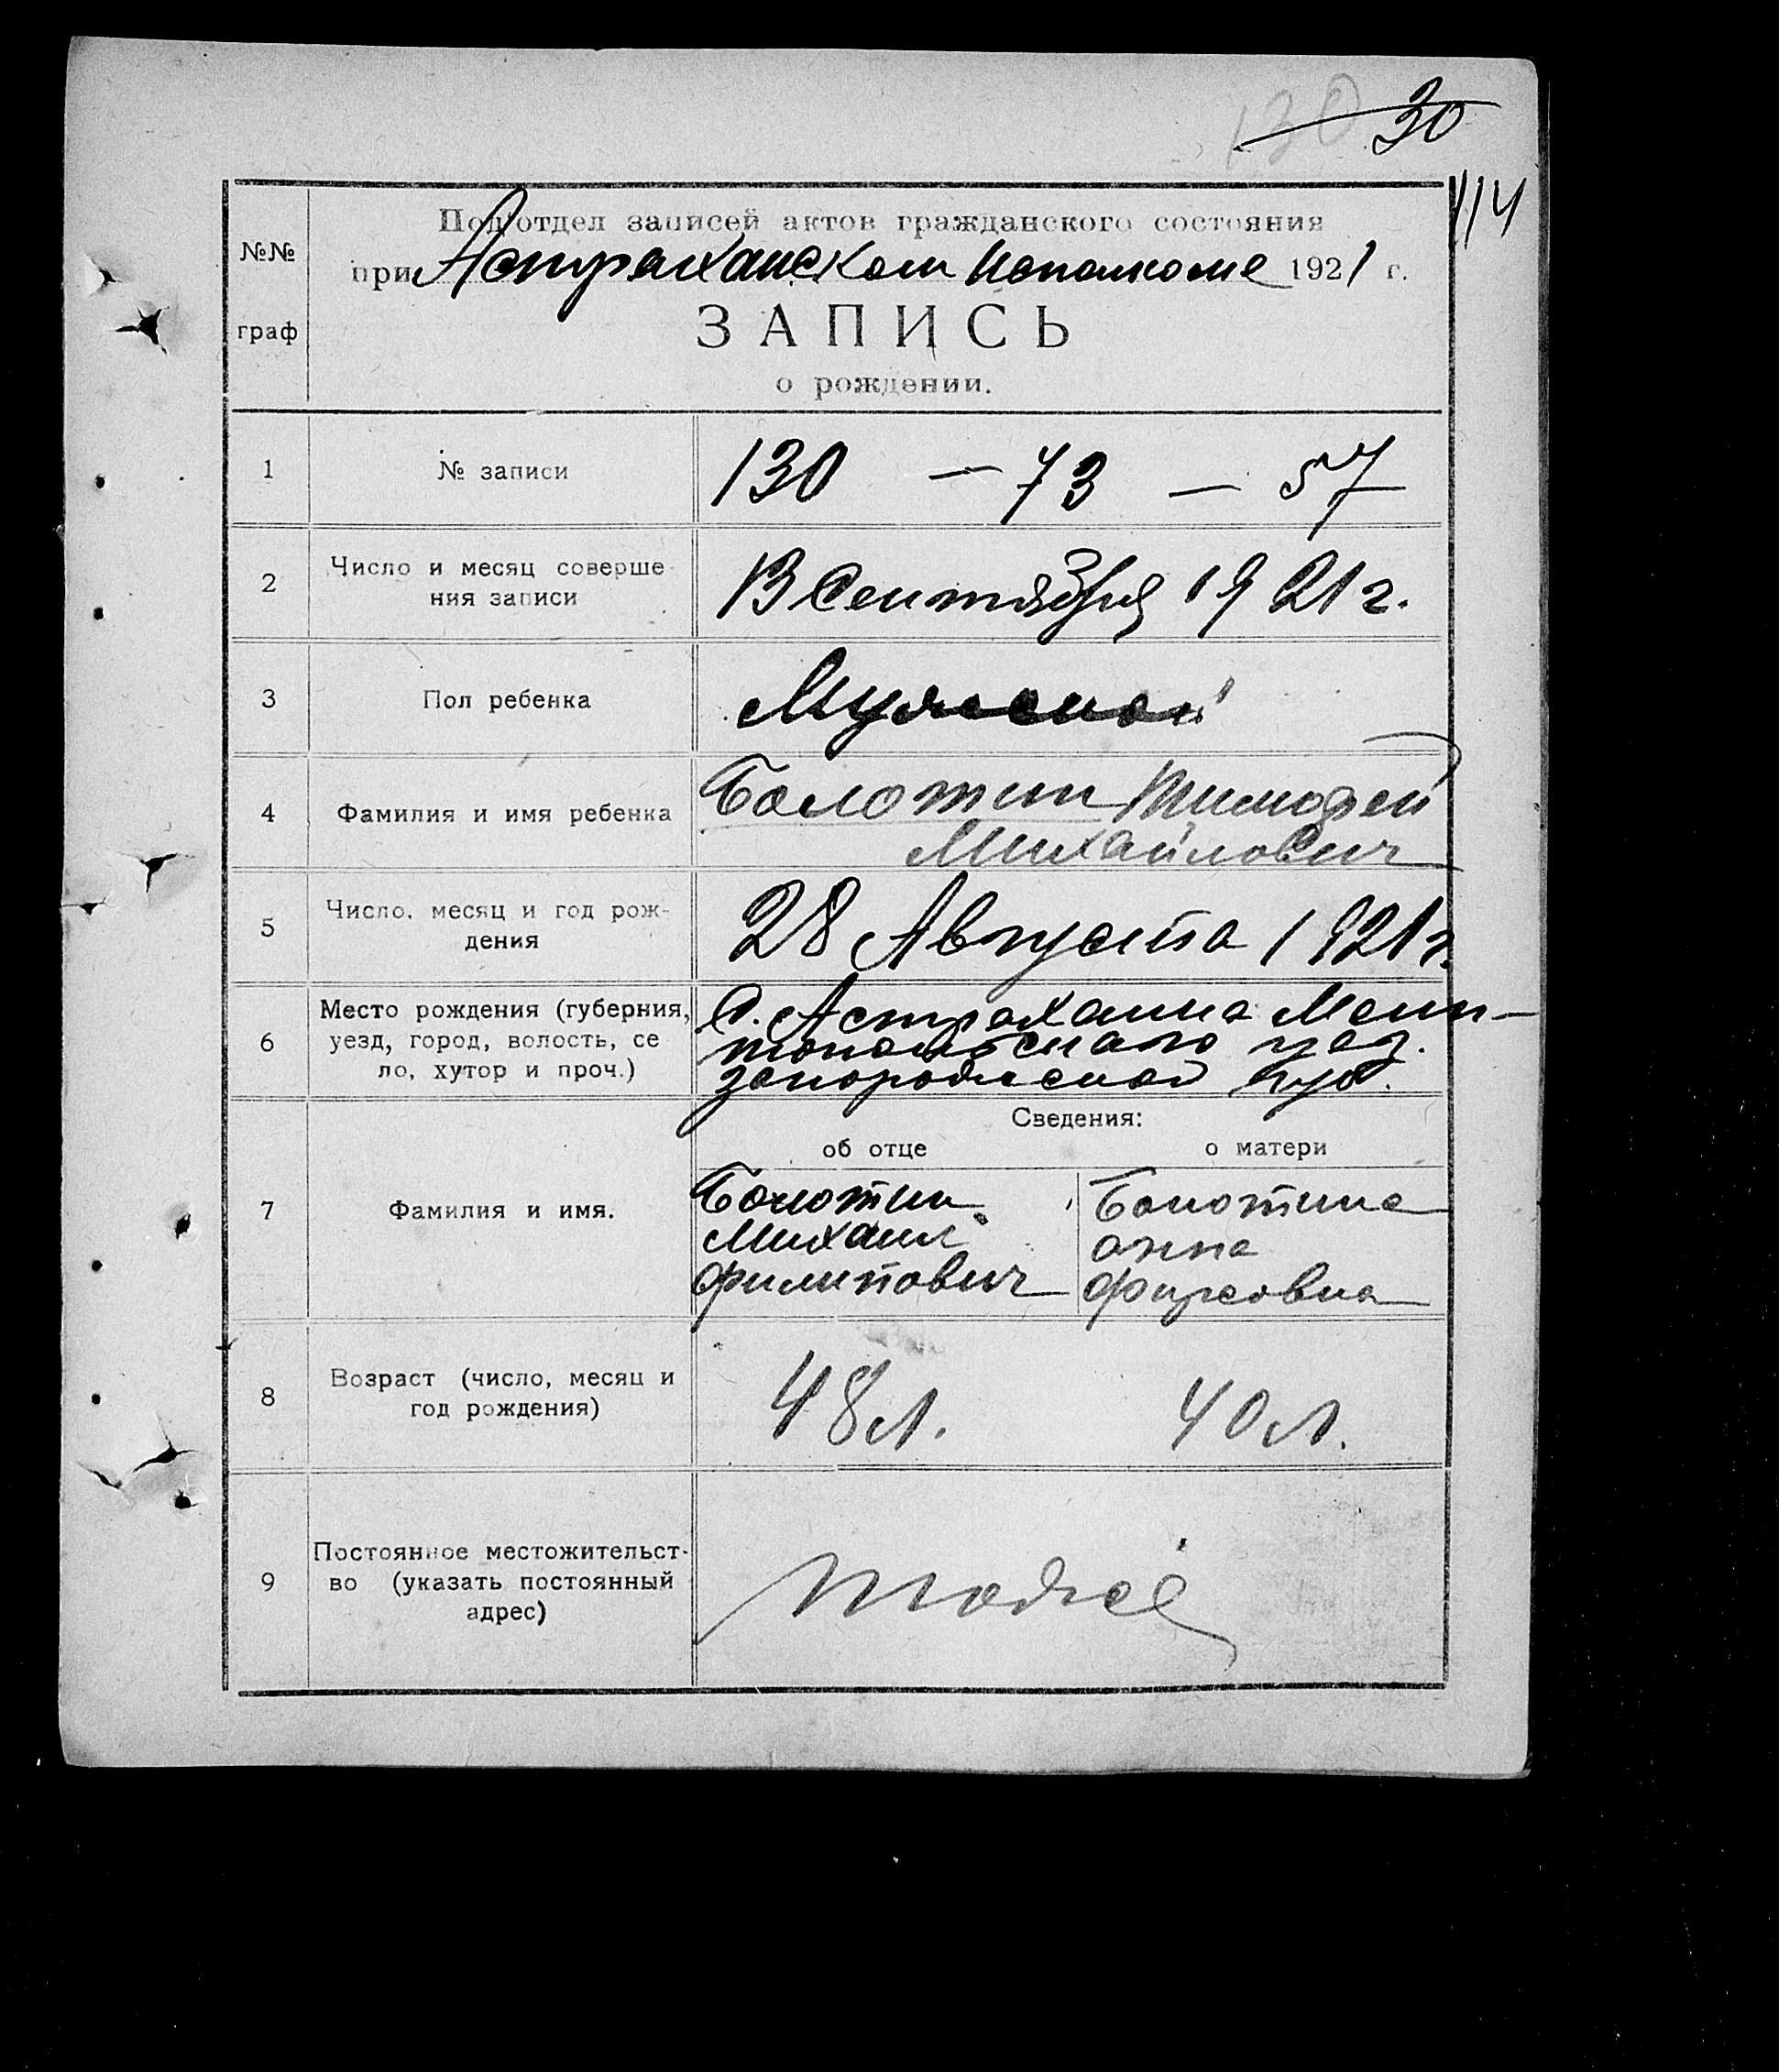 130 30
114
Подотдел записей актов гражданского состояния
№№
при Астраханском Исполкоме 1921 г.
граф
ЗАПИСЬ
о рождении.
1 № записи 130 — 73 — 57
2 Число и месяц соверше-
ния записи 13 Сентября 1921 г.
3 Пол ребенка Мужской
4 Фамилия и имя ребенка Болотин Тимофей
Михайлович
5 Число, месяц и год рож-
дения 28 Августа 1921 г.
6 Место рождения (губерния,
уезд, город, волость, се
ло, хутор и проч.)
С. Астраханка Мели-
топольского уез.
запорожской губ.
Сведения:
об отце о матери
7 Фамилия и имя.
Болотин
Михаил
Филипович
Болотина
анна
Фирсовна
8 Возраст (число, месяц и
год рождения)
48 л. 40 л.
9 Постоянное местожительст-
во (указать постоянный
адрес)
тоже